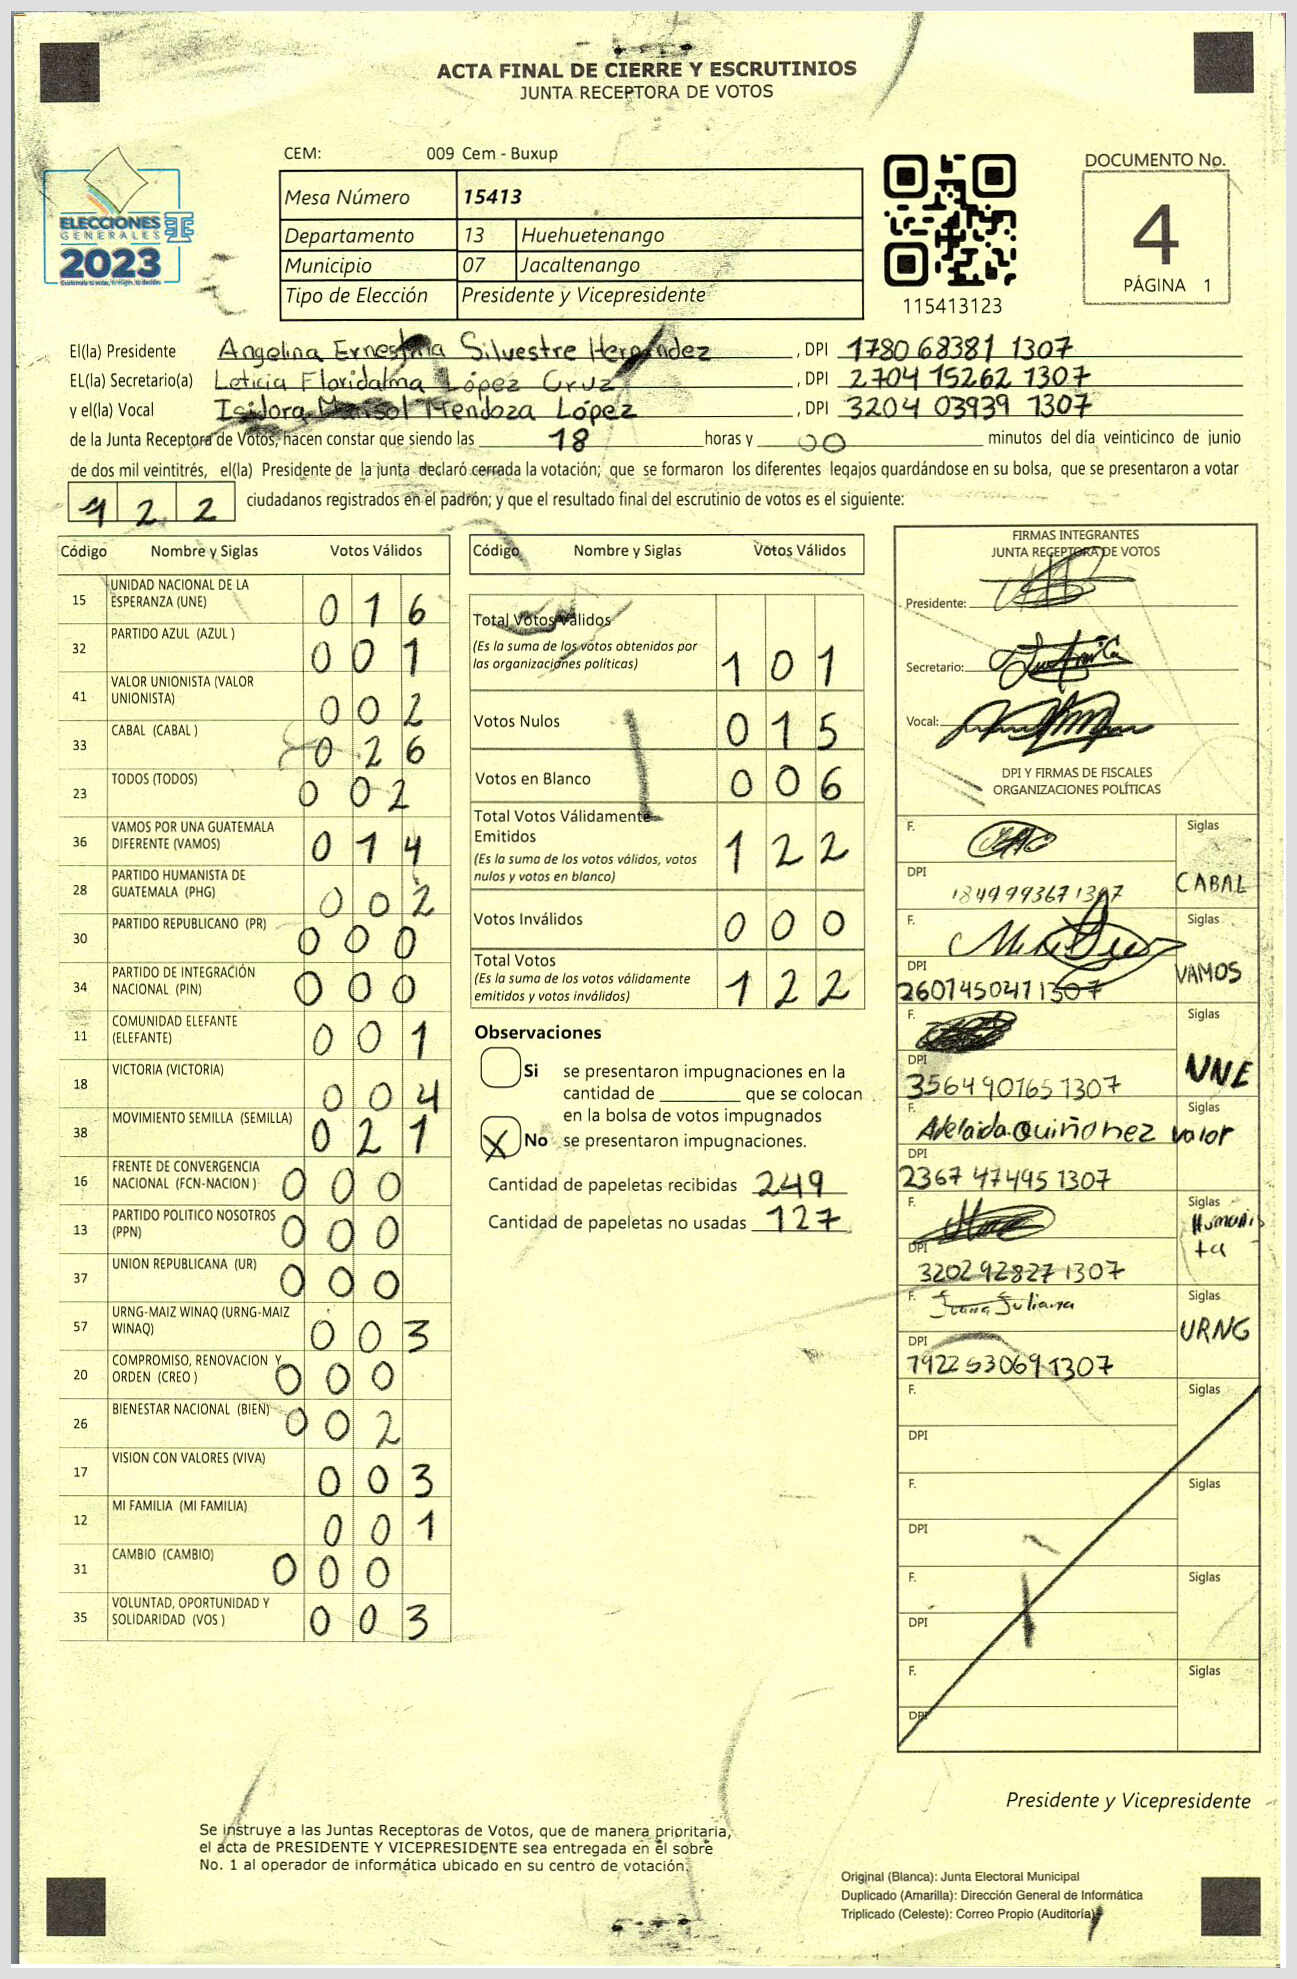 ACTA FINAL DE CIERRE Y ESCRUTINIOS
JUNTA RECEPTORA DE VOTOS
CEM: 009 Cem - Buxup
ELECCIONES
GENERALES
2023
Mesa Número 15413
Departamento 13 Huehuetenango
Municipio 07 Jacaltenango
Tipo de Elección Presidente y Vicepresidente
115413123
DOCUMENTO No.
4
PÁGINA 1
El(la) Presidente Angelina Ernestina Silvestre Hernández, DPI 1780 68381 1307
EL(la) Secretario(a) Leticia Floridalma López Cruz, DPI 2704 15262 1307
y el(la) Vocal Isidora Marisol Mendoza López, DPI 3204 03939 1307
de la Junta Receptora de Votos, hacen constar que siendo las 18 horas y 00 minutos del día veinticinco de junio
de dos mil veintitrés, el(la) Presidente de la junta declaró cerrada la votación; que se formaron los diferentes legajos quardándose en su bolsa, que se presentaron a votar
122 ciudadanos registrados en el padrón; y que el resultado final del escrutinio de votos es el siguiente:
Código Nombre y Siglas Votos Válidos
15 UNIDAD NACIONAL DE LA ESPERANZA (UNE) 016
32 PARTIDO AZUL (AZUL ) 001
41 VALOR UNIONISTA (VALOR UNIONISTA) 002
33 CABAL (CABAL ) 026
23 TODOS (TODOS) 002
36 VAMOS POR UNA GUATEMALA DIFERENTE (VAMOS) 014
28 PARTIDO HUMANISTA DE GUATEMALA (PHG) 002
30 PARTIDO REPUBLICANO (PR) 000
34 PARTIDO DE INTEGRACIÓN NACIONAL (PIN) 000
11 COMUNIDAD ELEFANTE (ELEFANTE) 001
18 VICTORIA (VICTORIA) 004
38 MOVIMIENTO SEMILLA (SEMILLA) 021
16 FRENTE DE CONVERGENCIA NACIONAL (FCN-NACION ) 000
13 PARTIDO POLITICO NOSOTROS (PPN) 000
37 UNION REPUBLICANA (UR) 000
57 URNG-MAIZ WINAQ (URNG-MAIZ WINAQ) 003
20 COMPROMISO, RENOVACION Y ORDEN (CREO ) 000
26 BIENESTAR NACIONAL (BIEN) 002
17 VISION CON VALORES (VIVA) 003
12 MI FAMILIA (MI FAMILIA) 001
31 CAMBIO (CAMBIO) 000
35 VOLUNTAD, OPORTUNIDAD Y SOLIDARIDAD (VOS ) 003
Código Nombre y Siglas Votos Válidos
Total Votos Válidos
(Es la suma de los votos obtenidos por las organizaciones políticas) 101
Votos Nulos 015
Votos en Blanco 006
Total Votos Válidamente Emitidos
(Es la suma de los votos válidos, votos nulos y votos en blanco) 122
Votos Inválidos 000
Total Votos
(Es la suma de los votos válidamente emitidos y votos inválidos) 122
Observaciones
Si se presentaron impugnaciones en la
cantidad de ________ que se colocan
en la bolsa de votos impugnados
X No se presentaron impugnaciones.
Cantidad de papeletas recibidas 249
Cantidad de papeletas no usadas 127
FIRMAS INTEGRANTES
JUNTA RECEPTORA DE VOTOS
Presidente:
Secretario:
Vocal:
DPI Y FIRMAS DE FISCALES
ORGANIZACIONES POLÍTICAS
F. Siglas
DPI 1849993671307 CABAL
F. Siglas
DPI 2607450471307 VAMOS
F. Siglas
DPI 3564901651307 UNE
F. Adelaida Quiñonez Siglas Valor
DPI 2367 47495 1307
F. Siglas Humanista
DPI 3202 92827 1307
F. Juana Juliana Siglas URNG
DPI 1922530691307
F. Siglas
DPI
F. Siglas
DPI
F. Siglas
DPI
F. Siglas
DPI
Presidente y Vicepresidente
Se instruye a las Juntas Receptoras de Votos, que de manera prioritaria,
el acta de PRESIDENTE Y VICEPRESIDENTE sea entregada en el sobre
No. 1 al operador de informática ubicado en su centro de votación.
Original (Blanca): Junta Electoral Municipal
Duplicado (Amarilla): Dirección General de Informática
Triplicado (Celeste): Correo Propio (Auditoría)